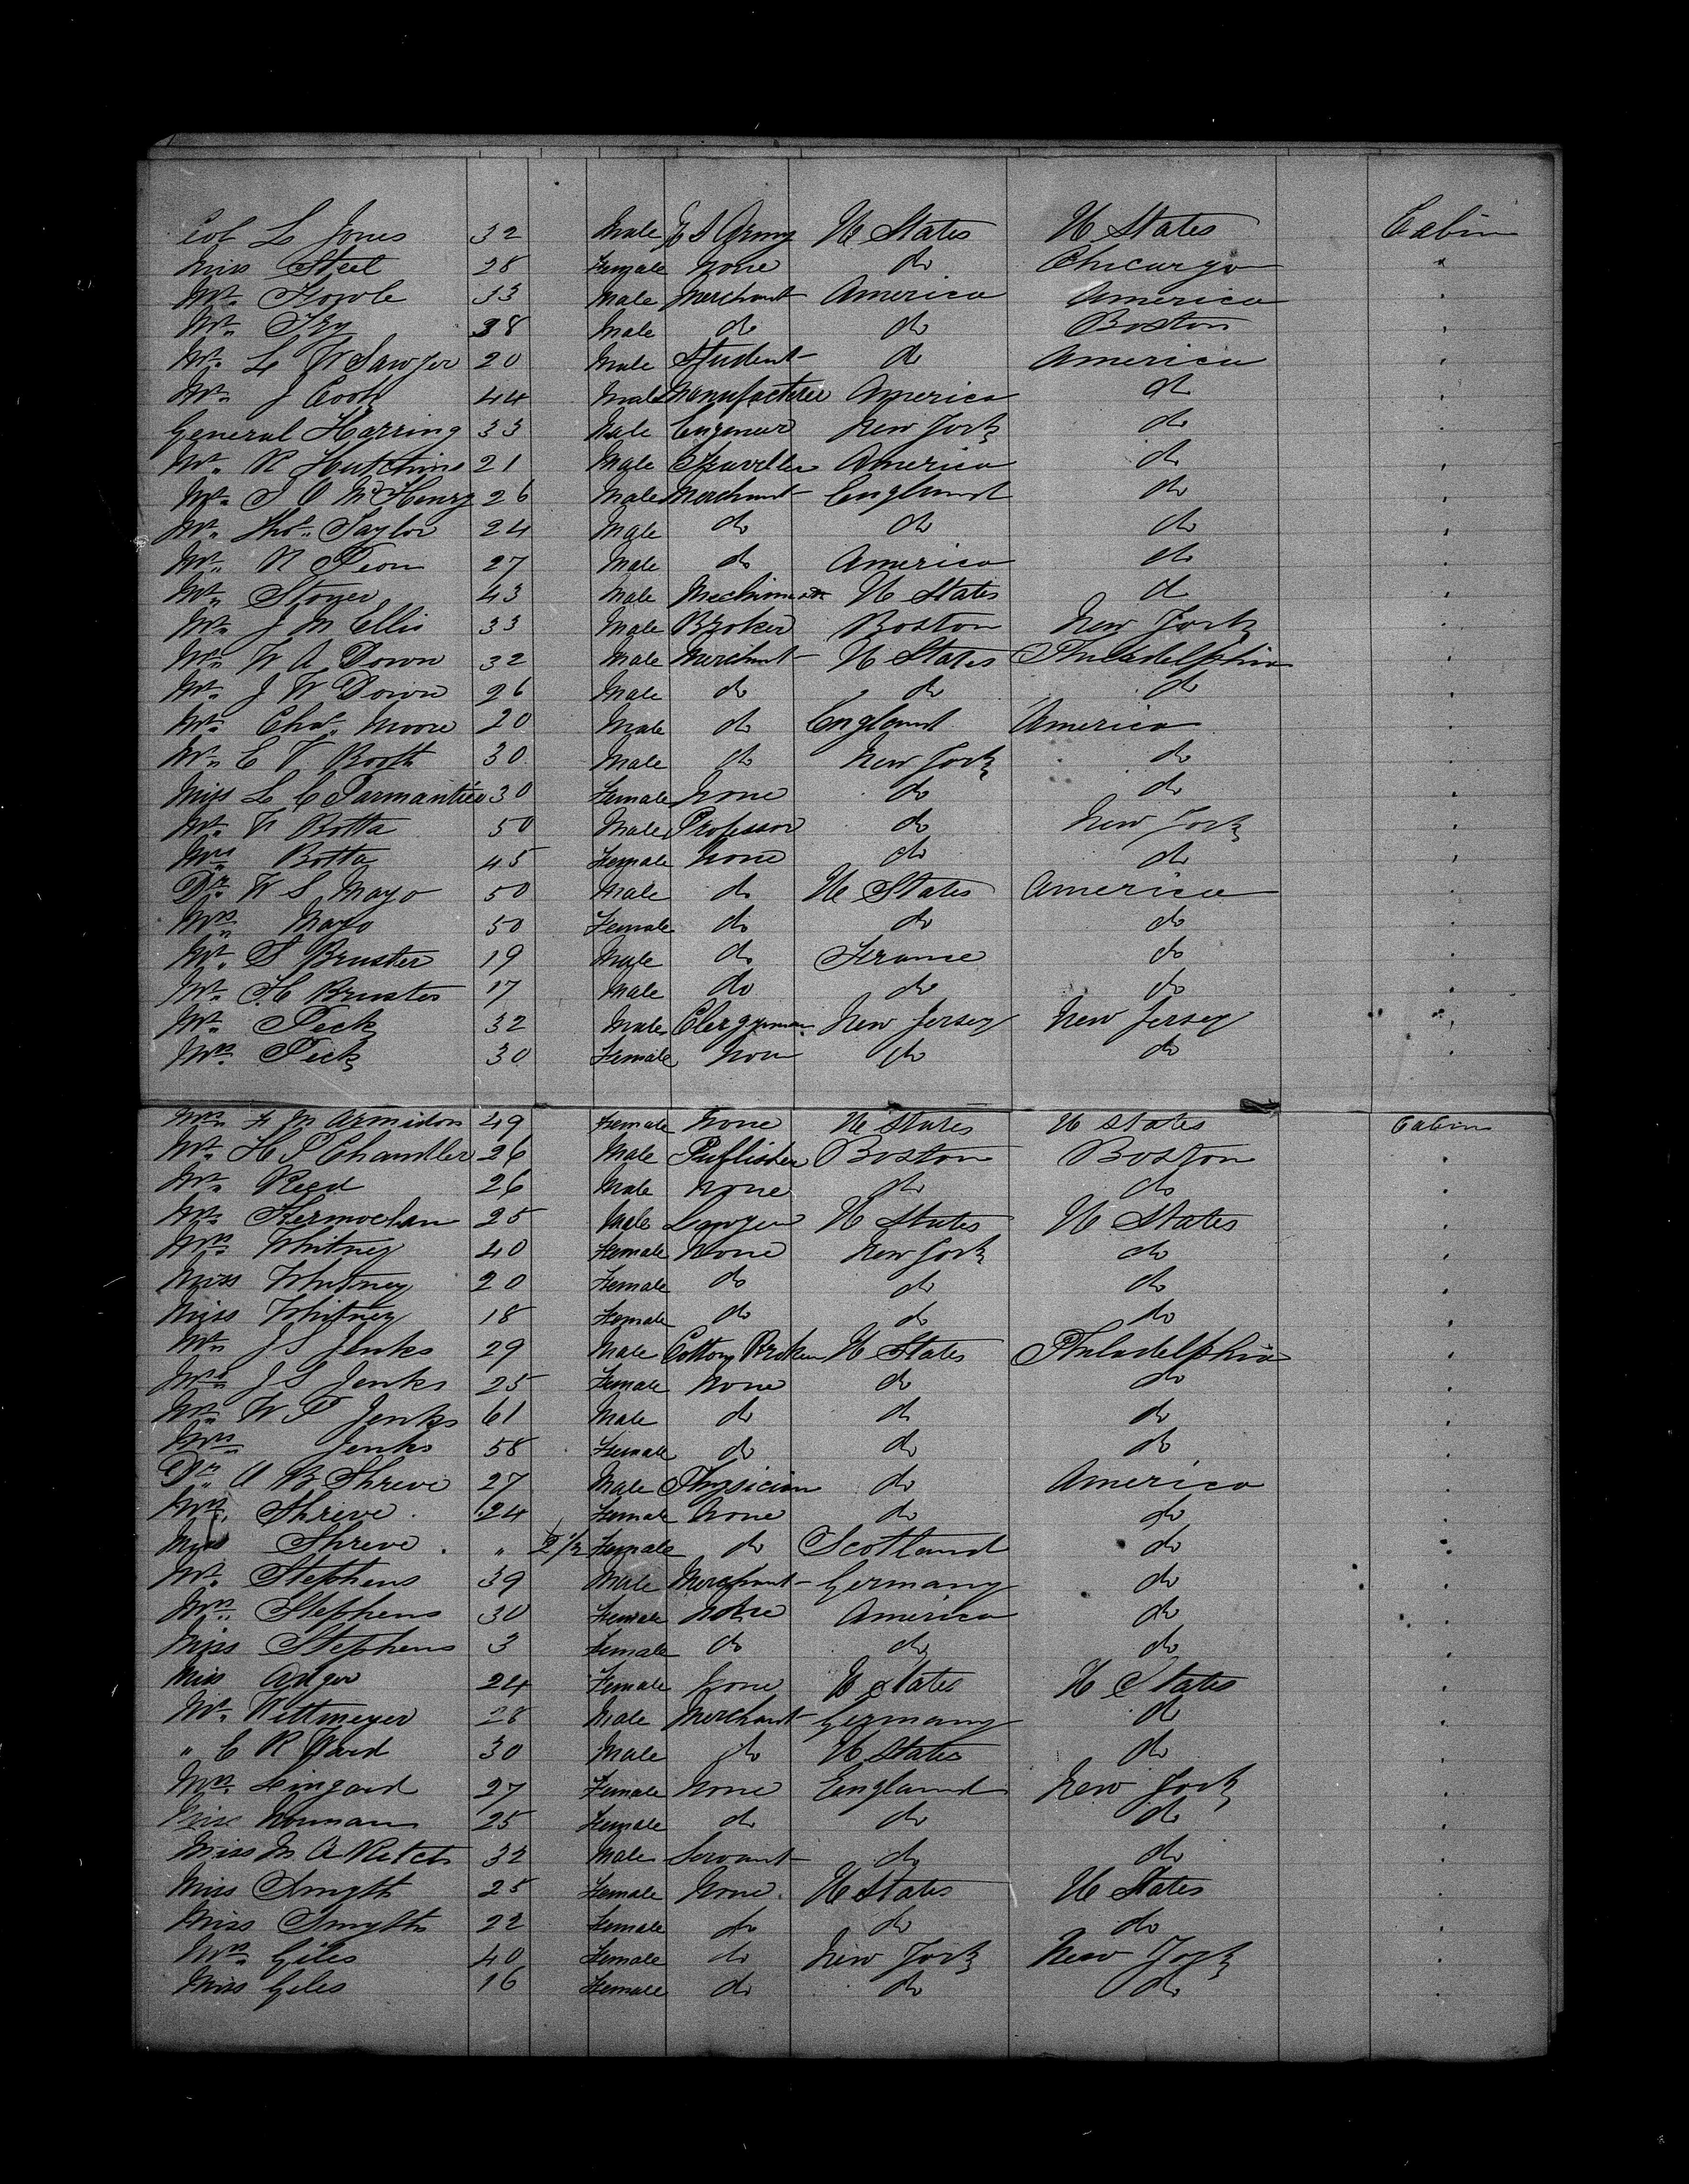 Col L Jones 32 Male U S Army U States U States Cabin
Miss Steel 28 Female None do Chicargo "
Mr. Fowle 33 Male Merchant America America "
Mr. Fry 38 Male do do Boston "
Mr. L W Sawyer 20 Male Student do America "
Mr. J Cook 44 Male Manufacterer America do "
General Harring 33 Male Engeneer New York do "
Mr. R Hutchins 21 Male Traveller America do "
Mr. J O McHenry 26 Male Merchant England do "
Mr. Thos. Taylor 24 Male do do do "
Mr. R 27 Male do America do "
Mr. Stoyer 43 Male U States do "
Mr. J M Ellis 33 Male Broker Boston New York "
Mr. W A Down 32 Male Merchant U States Philadelphia "
Mr. J W Down 26 Male do do do "
Mr. Chas. Moore 20 Male do England America "
Mr. E V Booth 30 Male do New York do "
Miss L C Parmantier 30 Female None do do "
Mr. V Botta 50 Male Professor do New York "
Mrs. Botta 45 Female None do do "
Dr. W S Mayo 50 Male do U States America "
Mrs. Mayo 50 Female do do do "
Mr. S Bruster 19 Male do France do "
Mr. H Bruster 17 Male do do do "
Mr. Peck 32 Male Clergyman New Jersey New Jersey "
Mrs. Peck 30 Female Non do do "
Mrs. F M Armidon 49 Female None U States U States Cabin
Mr. H P Chandler 26 Male Puflisher Boston Boston "
Mr. Reed 26 Male None do do "
Mr. Kermochan 25 Male Lawyer U States U States "
Mrs. Whitney 40 Female None New York do "
Miss Whitney 20 Female do do do "
Miss Whitney 18 Female do do do "
Mr. J S Jenks 29 Male Cotton Broker U States Philadelphia "
Mrs. J S Jenks 25 Female None do do "
Mr. W P Jenks 61 Male do do do "
Mrs. Jenks 58 Female do do do "
Dr. A B Shreve 27 Male Physician do America "
Mrs. Shreve 24 Female None do do "
Miss Shreve " 2 1/2 Female do Scotland do "
Mr. Stephens 39 Male Merchant Germany do "
Mrs. Stephens 30 Female None America do "
Miss Stephens 3 Female do do do "
Miss 24 Female None U States U States "
Mr. Wittmeyer 28 Male Merchant Germany do "
" C R 30 Male do U States do "
Mrs. Lingard 27 Female None England New York "
Miss Norman 25 Female do do do "
Miss M A 32 Male Servant do do "
Miss Smyth 25 Female None U States U States "
Miss Smyth 22 Female do do do "
Mrs. Giles 40 Female do New York New York "
Miss Giles 16 Female do do do "